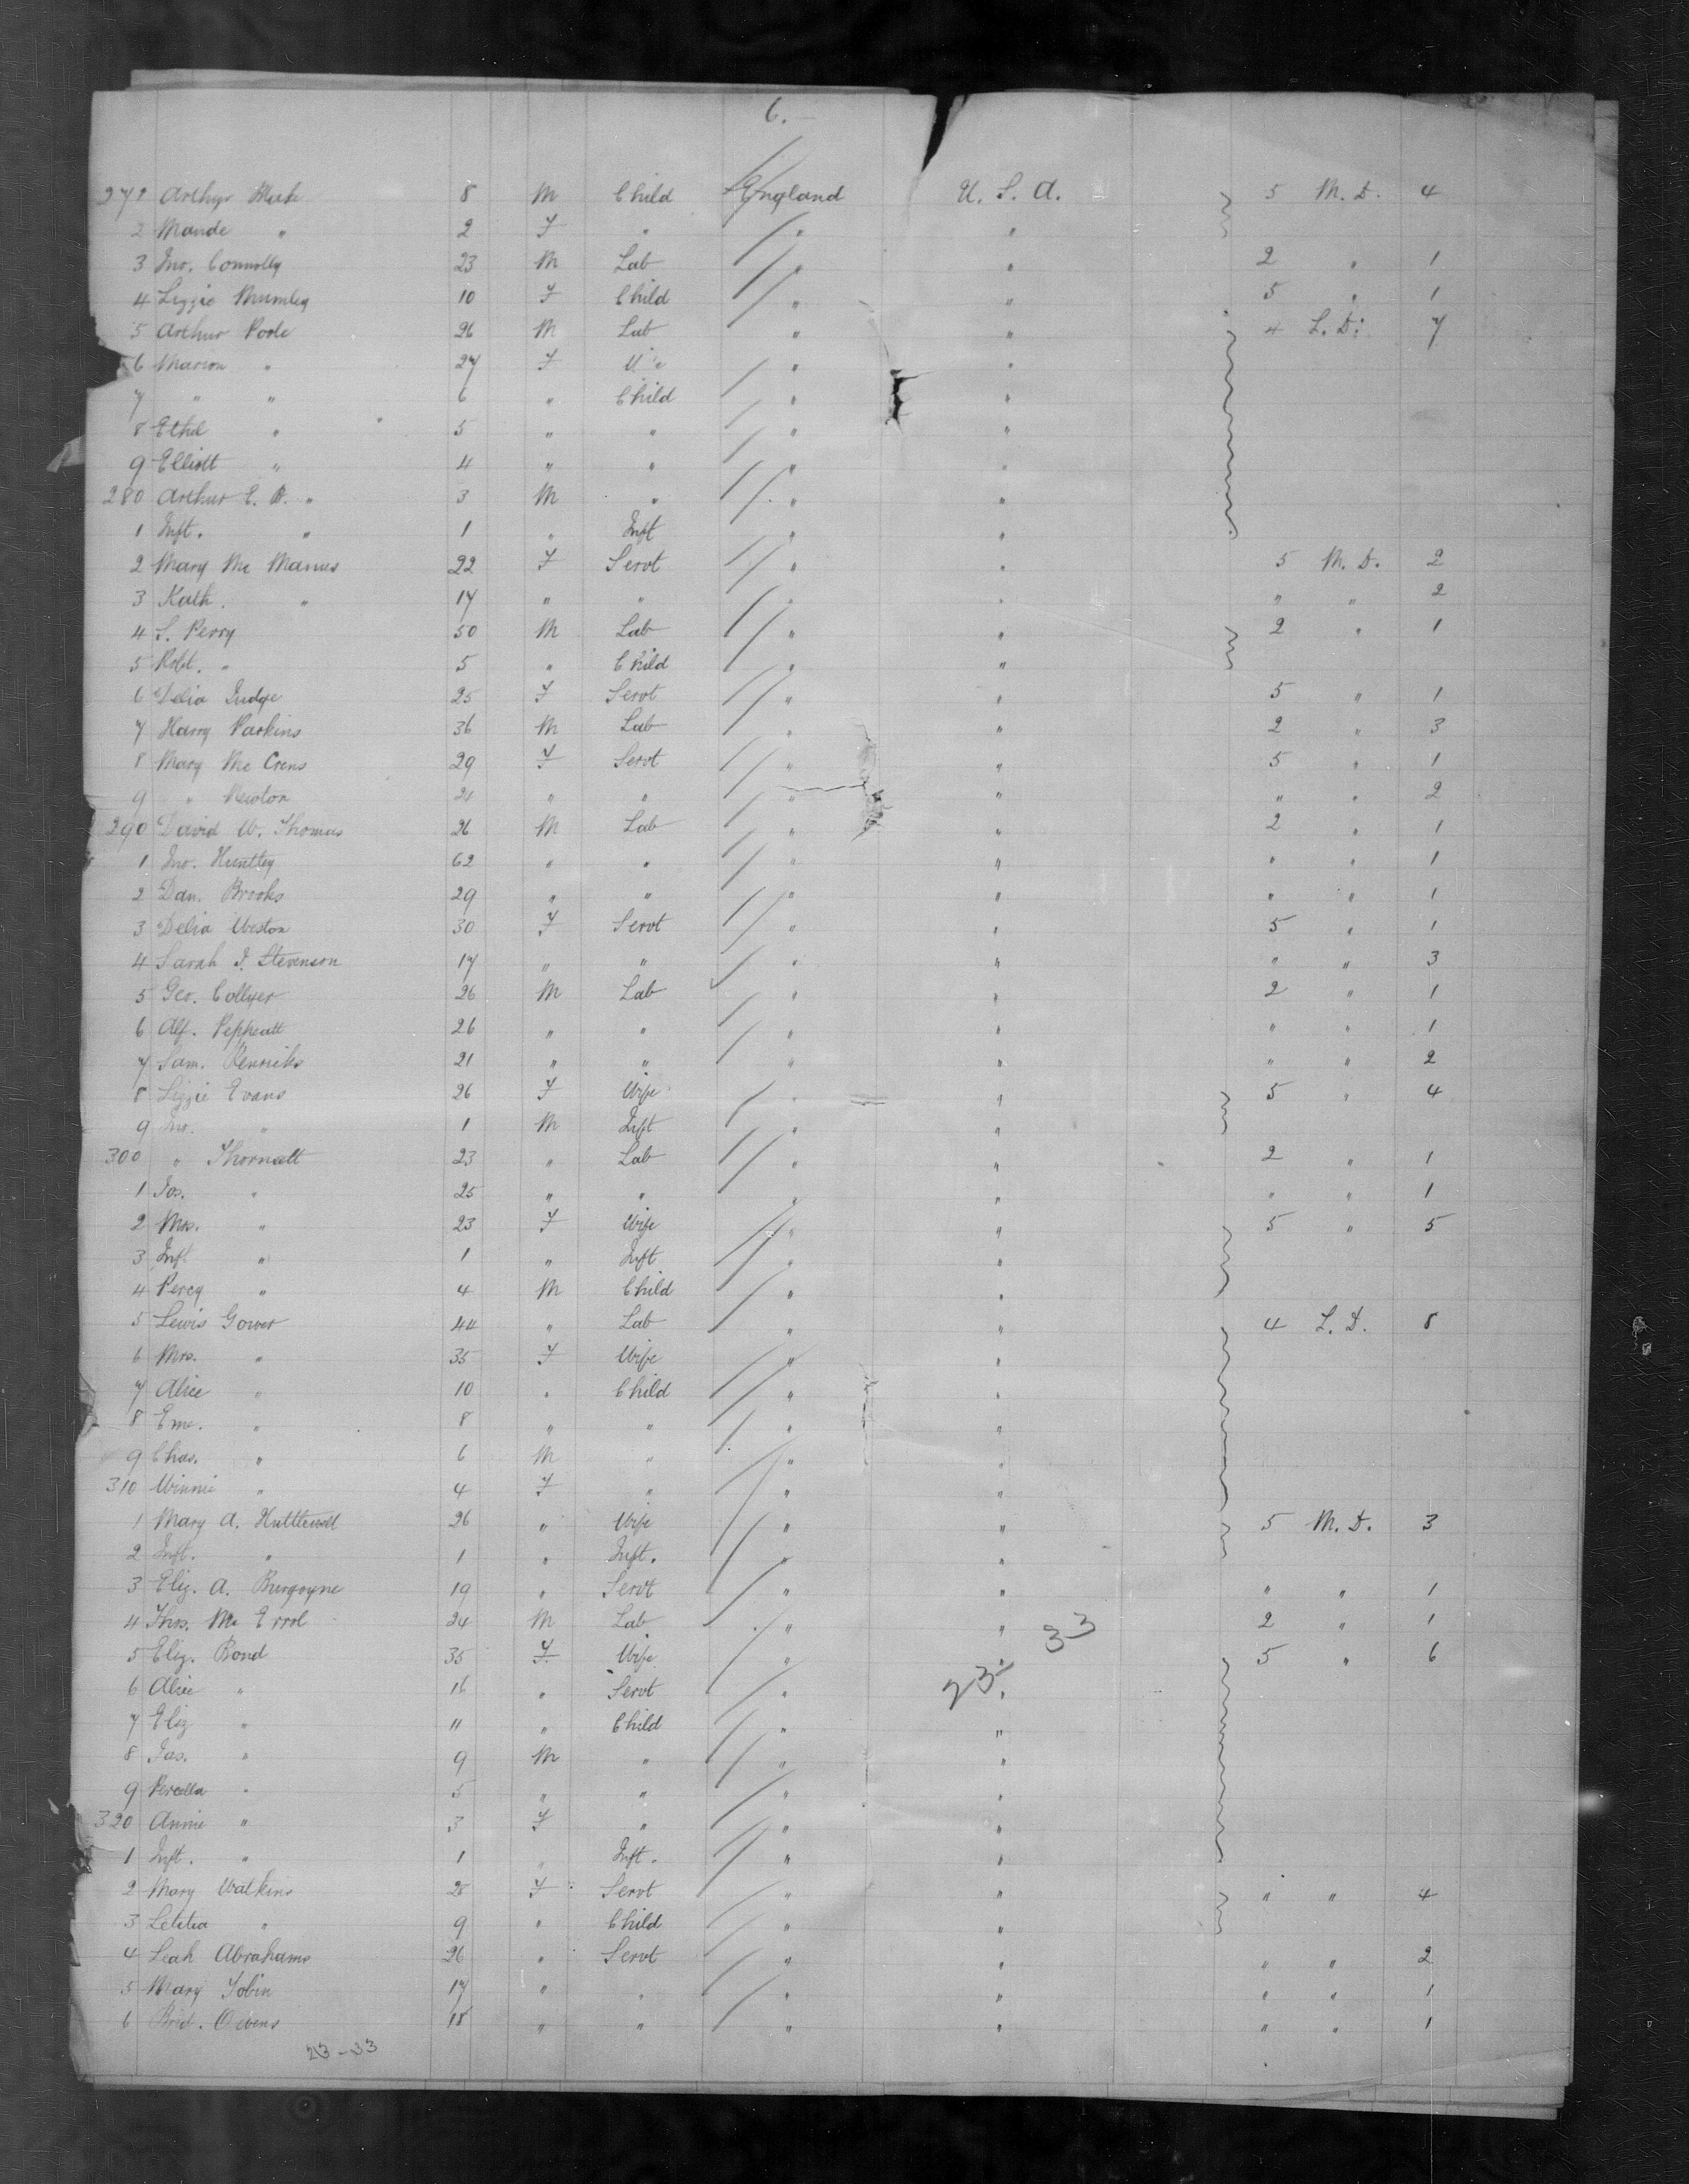 6.
271 Arthur 8 M Child England U. S. A. 5 M. D. 4
2 Maude " 2 F " " "
3 Jno. Connolly 23 M Lab " " 2 " 1
4 Lizzie Mumley 10 F Child " " 5 " 1
5 Arthur Poole 26 M Lab " " 4 L. D. 7
6 Marion " 27 F " "
7 " " 6 " Child " "
8 Ethel " 5 " " " "
9 Elliott " 4 " " " "
280 Arthur E. B. " 3 M " " "
1 Inft. " 1 " Inft " "
2 Mary Mc Manus 22 F Servt " " 5 M. D. 2
3 Kath. " 17 " " " " " " 2
4 S. Perry 50 M Lab " " 2 " 1
5 Robt. " 5 " Child " "
6 Delia Judge 25 F Servt " " 5 " 1
7 Harry Parkins 36 M Lab " " 2 " 3
8 Mary Mc Crens 29 F Servt " " 5 " 1
9 " Newton 21 " " " " " " 2
290 David W. Thomas 26 M Lab " " 2 " 1
1 Jno. Huntley 62 " " " " " " 1
2 Dan. Brooks 29 " " " " " " 1
3 Delia Weston 30 F Servt " " 5 " 1
4 Sarah J. Stevenson 17 " " " " " " 3
5 Geo. Collyer 26 M Lab " " 2 " 1
6 Alf. Peppeatt 26 " " " " " " 1
7 Sam. Kenricks 21 " " " " " " 2
8 Lizzie Evans 26 F Wife " " 5 " 4
9 Jno. " 1 M Inft " "
300 " Thornett 23 " Lab " " 2 " 1
1 Jos. " 25 " " " " " " 1
2 Mrs. " 23 F Wife " " 5 " 5
3 Inft " 1 " Inft " "
4 Percy " 4 M Child " "
5 Lewis Gower 44 " Lab " " 4 L. D. 8
6 Mrs. " 35 F Wife " "
7 Alice " 10 " Child " "
8 Em. " 8 " " " "
9 Chas. " 6 M " " "
310 Winnie " 4 F " " "
1 Mary A. 26 " Wife " " 5 M. D. 3
2 Inft. " 1 " Inft. " "
3 Eliz. A. Burgoyne 19 " Servt " " " " 1
4 Thos. Mc Errol 24 M Lab " " 2 " 1
33
5 Eliz. Bond 35 F Wife " " 5 " 6
6 Alice " 16 " Servt " "
23
7 Eliz " 11 " Child " "
8 Jas. " 9 M " " "
9 Percella " 5 " " " "
320 Annie " 3 F " " "
1 Inft. " 1 " Inft. " "
2 Mary Watkins 28 F Servt " " " " 4
3 Letitia " 9 " Child " "
4 Leah Abrahams 26 " Servt " " " " 2
5 Mary Tobin 17 " " " " " " 1
6 Brid. Owens 18 " " " " " " 1
23-33